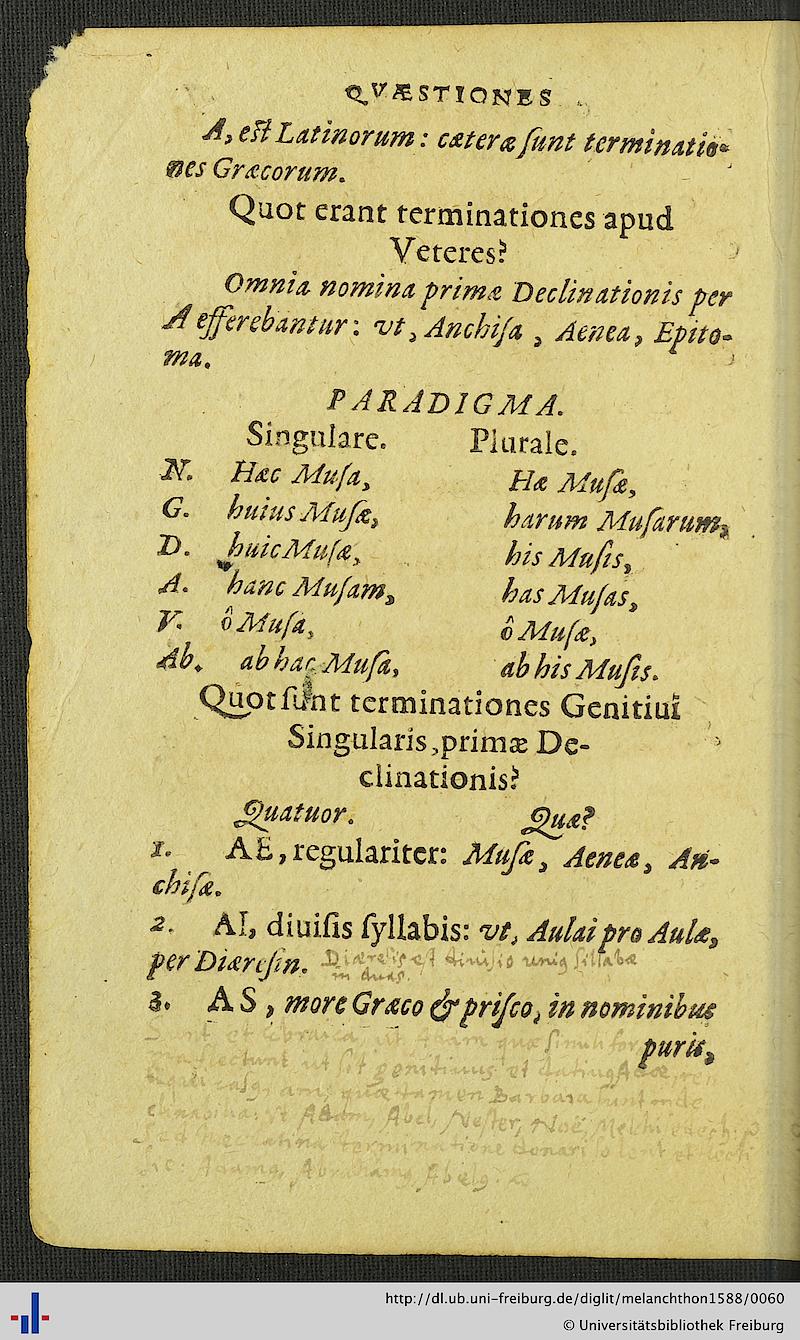 QVÆSTIONES
A, est Latinorum: cæteræ ſunt terminatio-
nes Græcorum.
Quot erant terminationes apud
Veteres?
Omnia nomina primæ Declinationis per
A efferebantur: vt, Anchiſa, Aenea, Epito-
ma.
PARADIGMA.
Singulare. Plurale.
N. Hæc Muſa, Hæ Muſæ,
G. huius Muſæ, harum Muſarum,
D. huic Muſæ, his Muſis,
A. hanc Muſam, has Muſas,
V. ô Muſa, ô Muſæ,
Ab. ab hac Muſa, ab his Muſis.
Quot ſunt terminationes Genitiui
Singularis, primæ De-
clinationis?
Quatuor. Quæ?
1. AE, regulariter: Muſæ, Aeneæ, An-
chiſæ.
2. AI, diuiſis ſyllabis: vt, Aulai pro Aulæ,
per Diæreſin. Diæresis est diuisio unius sillabæ
in duas.
3. AS, more Græco & priſco, in nominibus
puris,
Sunt et Ebraica, ut Adam quæ
ut sit genitiuus et datiuus Adæ,
quæ tamen Barbara sunt
ut Adam, Abel, Nester, Noë,
Latina terminatione donari solent et
sic: Adamus, Abrahamus, Abelus.
http://dl.ub.uni-freiburg.de/diglit/melanchthon1588/0060
© Universitätsbibliothek Freiburg